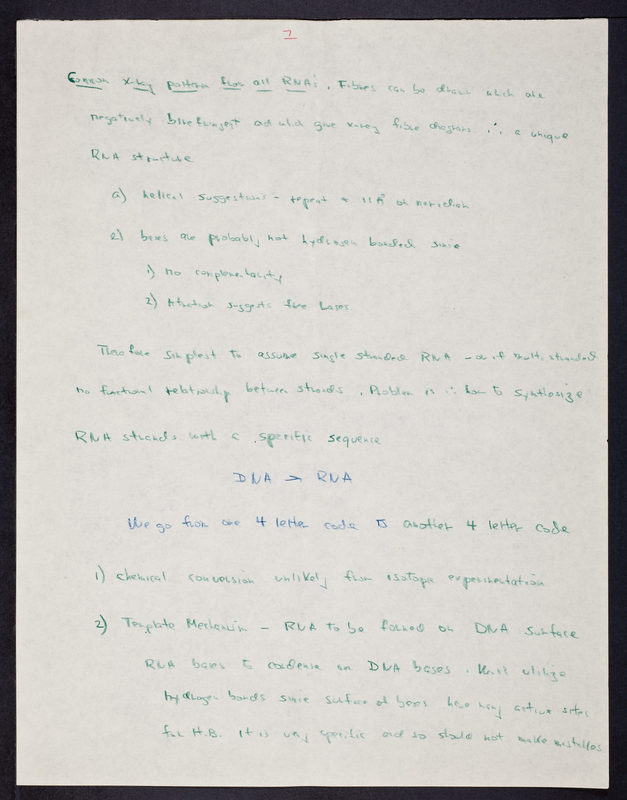 7
Common x-ray pattern from all RNA's. Fibres can be drawn which are
negatively birefringent and which give x-ray fibre diagrams ∴ a unique
RNA structure
a) helical suggestions - repeat + 11Å on meridian
2) bases are probably not hydrogen bonded since
1) no complementarity
2) titration suggests free bases
Therefore simplest to assume single stranded RNA - or if multi stranded
no functional relationship between strands. Problem is ∴ how to synthesize
RNA strands with a specific sequence
DNA → RNA
We go from one 4 letter code to another 4 letter code
1) chemical conversion unlikely from isotopic experimentation
2) Template Mechanism - RNA to be formed on DNA surface
RNA bases to condense on DNA bases. Must utilize
hydrogen bonds since surface of bases have many active sites
for H.B. It is very specific and so should not make mistakes